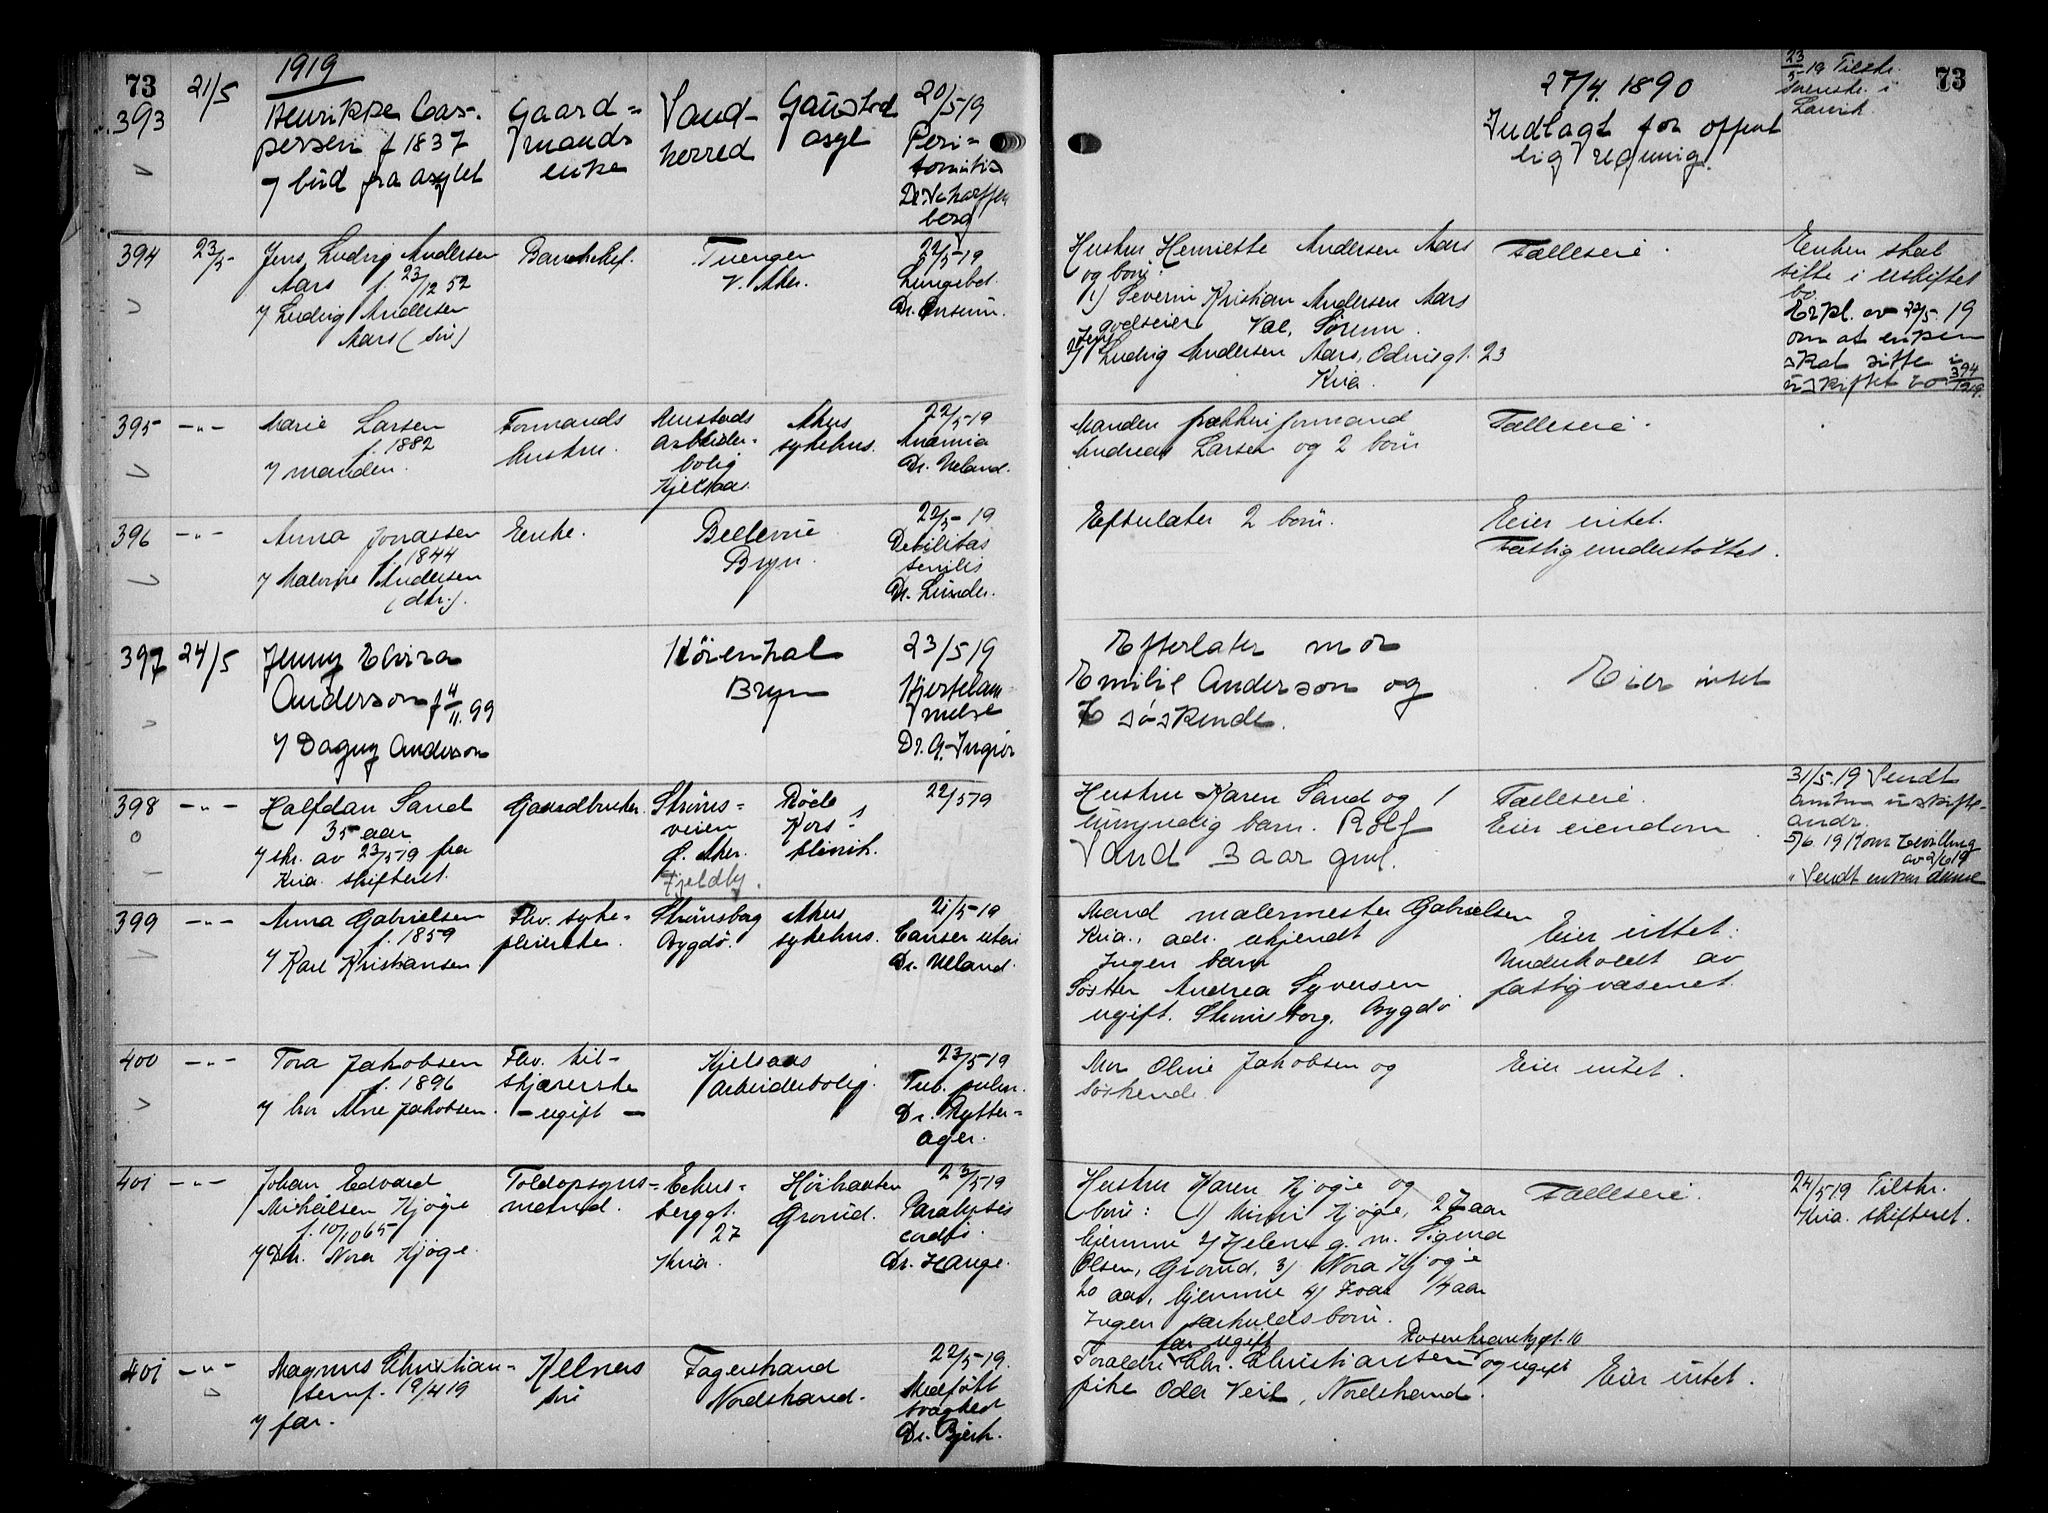 1919
73
393
21/5
Henrikke Cas-
persen f 1837
7 bud fra asylet
Gaard=
mands
enke
Sand-
herred
Gaustad
asyl
20/5 19
Peri-
tonitis
Dr. Scharffen
berg
27/4. 1890
Indlagt for offent
lig regning.
23/5-19 Tilskr.
sorenskr. i
Larvik.
73
394
23/5-
Jens Ludvig Andersen
Aars f. 23/12 52
7 Ludvig Andersen
Aars (søn)
Bankchef.
Tuengen
V. Aker.
22/5-19
Lungebet.
Hustru Henriette Andersen Aars
og børn:
1) Severin Kristian Andersen Aars
godseier Val, Sørum.
2) Jens Ludvig Andersen Aars, Odinsgt. 23
Kria.
Fælleseie.
Enken skal
sitte i uskiftet
bo.
Erkl. av 22/5. 19
om at enken
skal sitte i
uskiftet bo 394/1919.
395
-"-
Marie Larsen
f. 1882
7 manden.
Formands
hustru.
arbeider-
bolig
Kjelsaas.
Akers
sykehus.
22/5-19
Anæmia
Dr. Ueland.
Manden formand
Andreas Larsen og 2 børn
Fælleseie.
396
-"-
Anna Jonassen
f. 1844
7 Malvine Andersen
(dtr.).
Enke.
Bellevue
Bryn.
22/5-19
Debilitas
senilis
Dr. Lunde.
Efterlater 2 børn.
Eier intet.
Fattigunderstøttet.
397
24/5
Jenny Elvira
Anderson f 4/11. 99
7 Dagny Anderson
Bryn
23/5 19
Hjertelam-
melse
Efterlater mor
Emilie Anderson og
søskende.
Eier intet
398
-"-
Halfdan Sand
35 aar
7 skr. av 23/5 19 fra
Kria. skifteret.
Gaardbruker.
Strøms-
veien
Ø. Aker.
Fjeldby.
Røde
Kors
klinik.
22/5 19
Hustru Karen Sand og 1
umyndig barn. Rolf
Sand 3 aar gml.
Fælleseie.
Eier eiendom.
31/5. 19 Sendt
5/6. 19 Kom bevilling
av 2/6 19
Sendt enken denne
399
-"-
Anna Gabrielsen
f. 1859
7 Karl Kristiansen
Fhv. syke-
pleierske.
Strømsborg
Bygdø.
Akers
sykehus.
21/5-19
Cancer uteri
Dr. Ueland.
Mand malermester Gabrielsen
Kria., adr. ukjendt
Ingen barn
Søster Andrea Syversen
ugift. Strømsborg, Bygdø
Eier intet.
Underholdt av
fattigvæsenet.
400
-"-
Tora Jakobsen
f. 1896
7 bror Arne Jakobsen.
Fhv. til-
skjærerske
- ugift -
Kjelsaas
arbeiderbolig.
23/5-19
Tub. pulm.
Dr. Rytter-
ager.
Mor Oline Jakobsen og
søskende
Eier intet.
401
-"-
Johan Edvard
Mikalsen Kjøge
f. 10/10 65
7 Dtr. Nora Kjøge.
Toldopsyns-
mand.
Eckers-
berggt.
27
Kria.
Høihaugen
Grorud.
23/5 19
Paralysis
cordis
Dr. Hauge.
Hustru Karen Kjøge og
børn: 1) Mimi Kjøge, 27 aar
hjemme 2) Helene g. m. Sigurd
Olsen, Grorud, 3) Nora Kjøge
20 aar, hjemme 4) Ivar 14 aar
Ingen særkuldsbørn.
Fælleseie.
24/5 19 Tilskr.
Kria. skifteret.
401
-"-
Magnus Christian-
sen f. 19/4 19
7 far.
Kelners
søn
Fagerstrand
Nordstrand.
22/5-19.
Medfødt
svaghet
Dr. Bjerk.
far ugift Rosenkrantzgt. 10
Forældre Chr. Christiansen og ugift
pike Oda Veil, Nordstrand.
Eier intet.